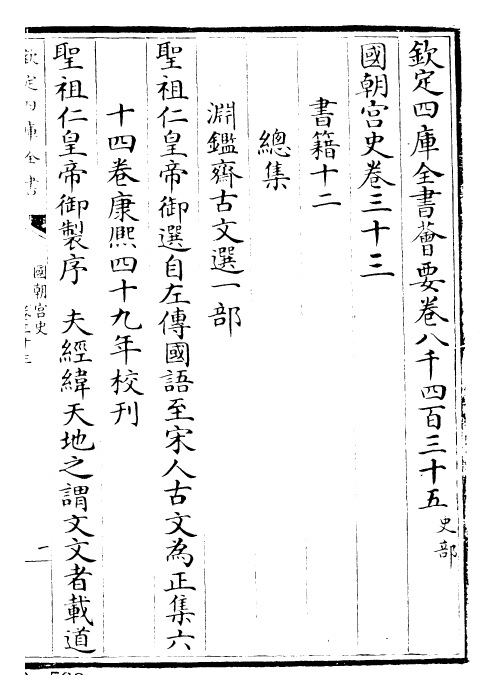 欽定四庫全書薈要卷八千四百三十五 史部
國朝宫史卷三十三
書籍十二
總集
淵鑑齋古文選一部
聖祖仁皇帝御選自左傳國語至宋人古文為正集六
十四卷康熙四十九年校刊
聖祖仁皇帝御製序 夫經緯天地之謂文文者載道
欽定四庫全書
國朝宫史
卷三十三
一